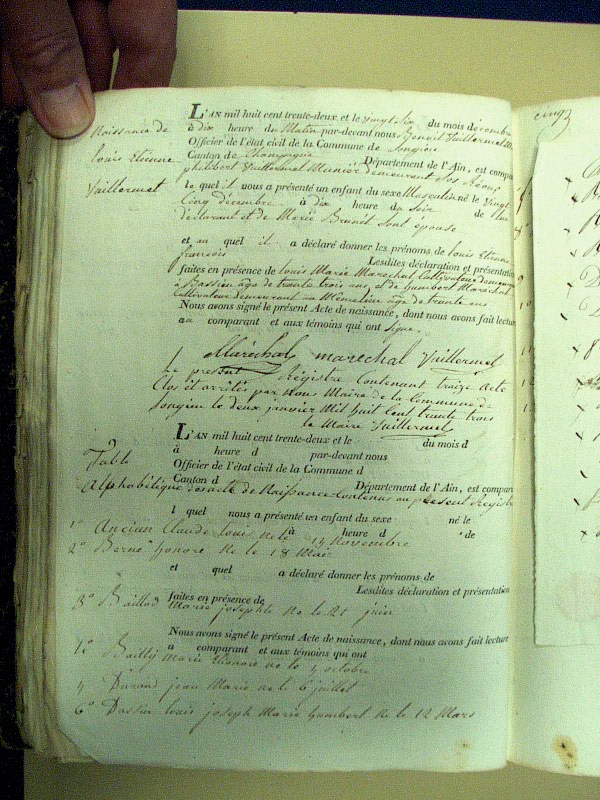 Naissance de
louis Etienne
Vuillermet
L'AN mil huit cent trente-deux et le vingt Six du mois de cembre
à dix heure du Matin par-devant nous Benoit Vuillermet M
Officier de l'état civil de la Commune de Songieu
Canton de Champagne Département de l'Ain, est compa
philibert Vuillermet Meunier demeurant
le quel il nous a présenté un enfant du sexe Masculin né le Vingt
Cinq décembre à dix heure du Soir de lui
déclarant et de Marie Brunet Sont épouse
et au quel il a déclaré donner les prénoms de louis Etienne
françois Lesdites déclaration et présentation
faites en présence de louis Marie Marechal Cultivateur demeurant
à Bassieu âgé de trente trois ans, et de humbert Maréchal
Cultivateur demeurant au âgé de trente ans
Nous avons signé le présent Acte de naissance, dont nous avons fait lecture
au comparant et aux témoins qui ont Signé
Maréchal marechal Vuillermet
Le present Régistre Contenant traize Acte
Clos et arrêtés par Nous Maire de la Commune de
Songieu le deux janvier Mil huit Cent trente trois
le Maire Vuillermet
L'AN mil huit cent trente-deux et le du mois d
à heure d par-devant nous
Officier de l'état civil de la Commune d
Canton d Département de l'Ain, est compar
Table
Alphabétique des acte de Naissance Contenus au present Régistre
l quel nous a présenté un enfant du sexe né le
à heure d de
1º Ancian Claude louis né le 14 Novembre
2º Berne honoré Né le 18 Mai
et quel a déclaré donner les prénoms de
Lesdites déclaration et présentation
faites en présence de
3º Baillod Marie josephte Né le 21 juin
Nous avons signé le présent Acte de naissance, dont nous avons fait lecture
a comparant et aux témoins qui ont
Bailly Marie né le 4 octobre
Durand jean Marie né le 6 juillet
6º Dassin louis joseph Marie humbert Né le 12 Mars
cinq